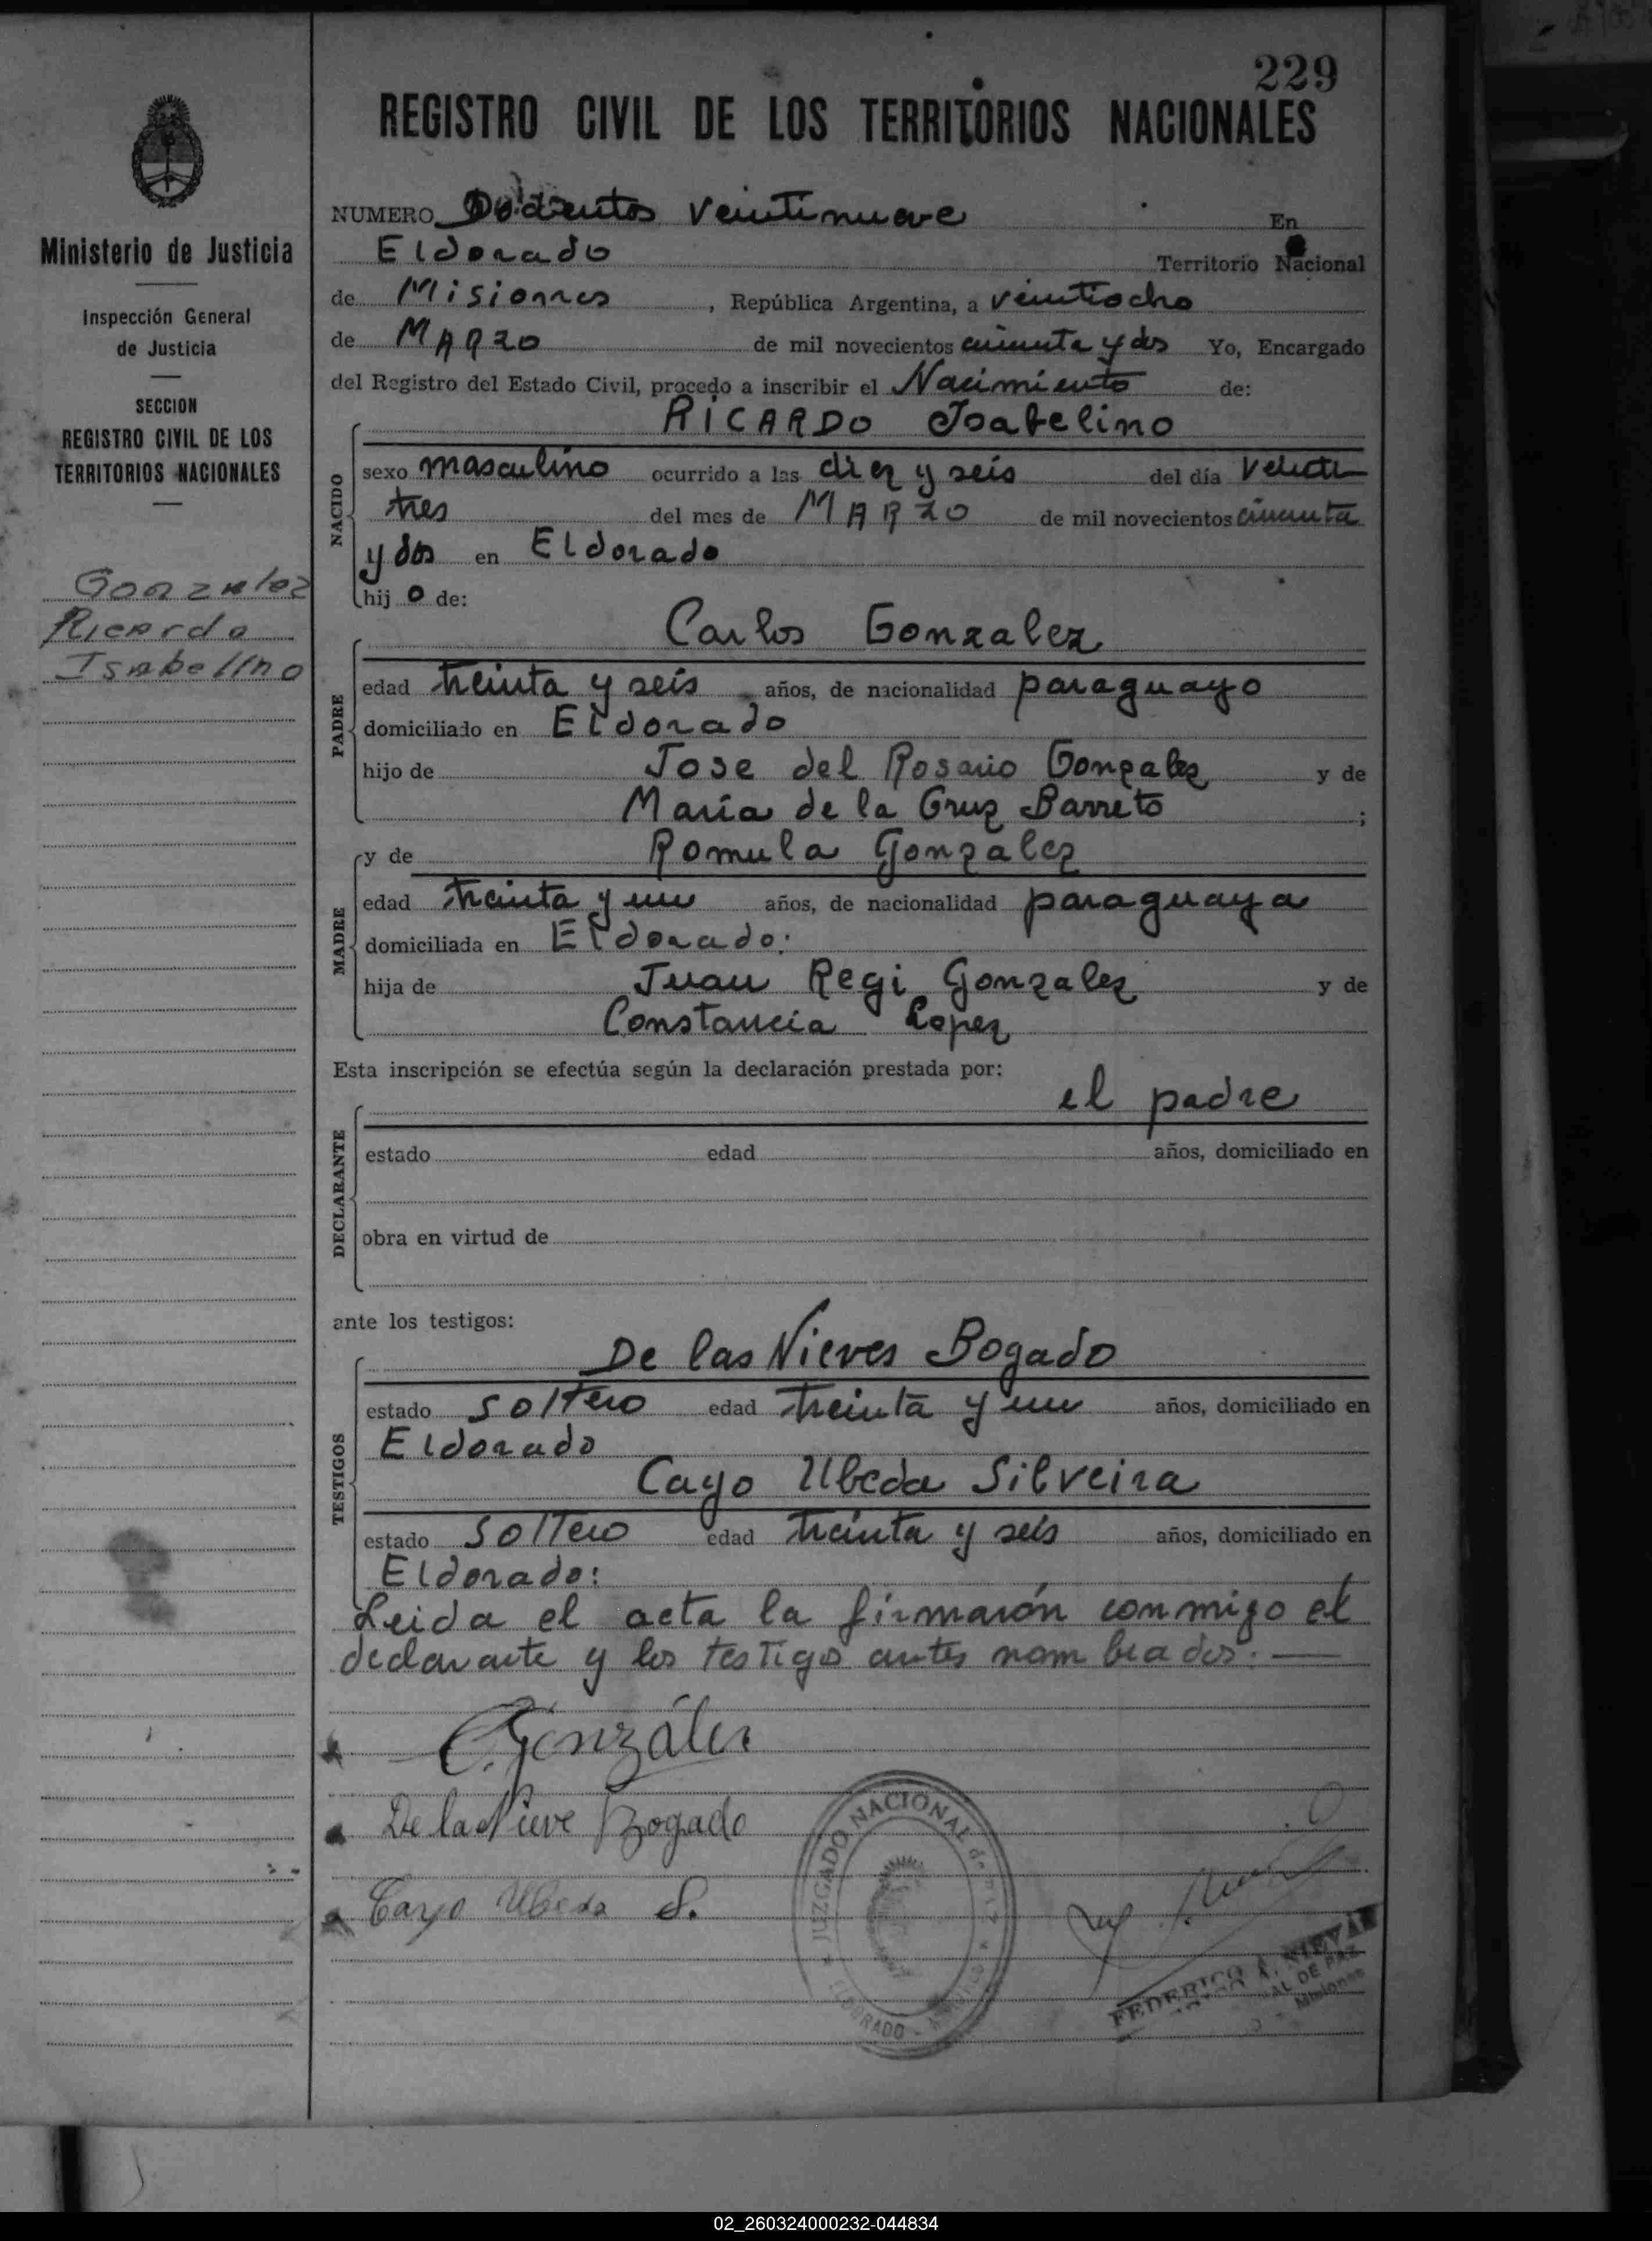 229
REGISTRO CIVIL DE LOS TERRITORIOS NACIONALES
Ministerio de Justicia
Inspección General
de Justicia
SECCION
REGISTRO CIVIL DE LOS
TERRITORIOS NACIONALES
Gonzalez
Ricardo
Isabelino
NUMERO Doscientos veintinueve En
Eldorado Territorio Nacional
de Misiones, República Argentina, a veintiocho
de MARZO de mil novecientos cincuenta y dos Yo, Encargado
del Registro del Estado Civil, procedo a inscribir el Nacimiento de:
NACIDO
RICARDO Isabelino
sexo masculino ocurrido a las diez y seis del día veinti
tres del mes de MARZO de mil novecientos cincuenta
y dos en Eldorado
hijo de:
PADRE
Carlos Gonzalez
edad treinta y seis años, de nacionalidad paraguayo
domiciliado en Eldorado
hijo de Jose del Rosario Gonzalez y de
María de la Cruz Barreto ;
MADRE
y de Romula Gonzalez
edad treinta y un años, de nacionalidad paraguaya
domiciliada en Eldorado.
hija de Juan Regi Gonzalez y de
Constancia Lopez
Esta inscripción se efectúa según la declaración prestada por:
DECLARANTE
el padre
estado edad años, domiciliado en
obra en virtud de
ante los testigos:
TESTIGOS
De las Nieves Bogado
estado soltero edad treinta y un años, domiciliado en
Eldorado
Cayo Ubeda Silveira
estado soltero edad treinta y seis años, domiciliado en
Eldorado:
Leida el acta la firmarón conmigo el
declarante y los testigos antes nombrados.
C. González
De la Nieve Bogado
Cayo Ubeda S.
JUZGADO NACIONAL de PAZ
ELDORADO - Misiones
FEDERICO A.
AL DE PAZ
Misiones
02_260324000232-044834